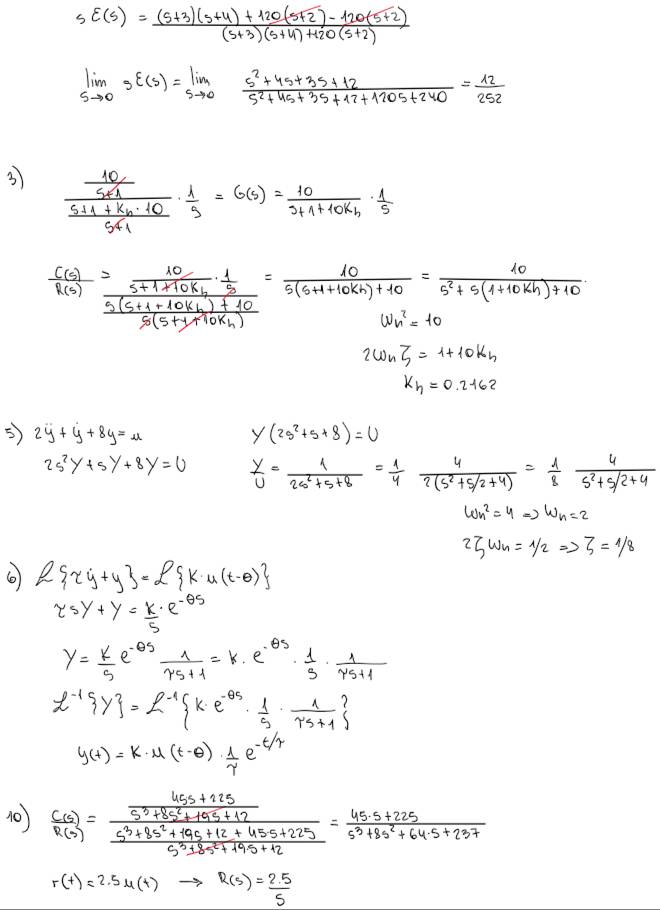 sE(s) = \frac{(s+3)(s+4) + 120(s+2) - 120(s+2)}{(s+3)(s+4) + 120(s+2)}
\lim_{s→0} sE(s) = \lim_{s→0} \frac{s^2 + 4s + 3s + 12}{s^2 + 4s + 3s + 12 + 120s + 240} = \frac{12}{252}
3) \frac{\frac{10}{s+1}}{\frac{s+1+K_h·10}{s+1}} · \frac{1}{s} = G(s) = \frac{10}{s+1+10K_h} · \frac{1}{s}
\frac{C(s)}{R(s)} = \frac{\frac{10}{s+1+10K_h} · \frac{1}{s}}{\frac{s(s+1+10K_h)+10}{s(s+1+10K_h)}} = \frac{10}{s(s+1+10K_h)+10} = \frac{10}{s^2+s(1+10K_h)+10}.
ω_n^2 = 10
2ω_nζ = 1+10K_h
K_h = 0.2162
5) 2ÿ + ẏ + 8y = u Y(2s^2+s+8) = U
2s^2Y + sY + 8Y = U \frac{Y}{U} = \frac{1}{2s^2+s+8} = \frac{1}{4} \frac{4}{2(s^2+s/2+4)} = \frac{1}{8} \frac{4}{s^2+s/2+4}
ω_n^2 = 4 ⇒ ω_n = 2
2ζω_n = 1/2 ⇒ ζ = 1/8
6) L{τẏ+y} = L{K·u(t-θ)}
τsY + Y = \frac{K}{s}·e^{-θs}
Y = \frac{K}{s} e^{-θs} \frac{1}{τs+1} = K·e^{-θs} · \frac{1}{s} · \frac{1}{τs+1}
L^{-1}{Y} = L^{-1}{K·e^{-θs} · \frac{1}{s} · \frac{1}{τs+1}}
y(t) = K·u(t-θ) · \frac{1}{τ} e^{-t/τ}
10) \frac{C(s)}{R(s)} = \frac{\frac{45s+225}{s^3+8s^2+19s+12}}{\frac{s^3+8s^2+19s+12+45·s+225}{s^3+8s^2+19·s+12}} = \frac{45·s+225}{s^3+8s^2+64·s+237}
r(t) = 2.5u(t) → R(s) = \frac{2.5}{s}